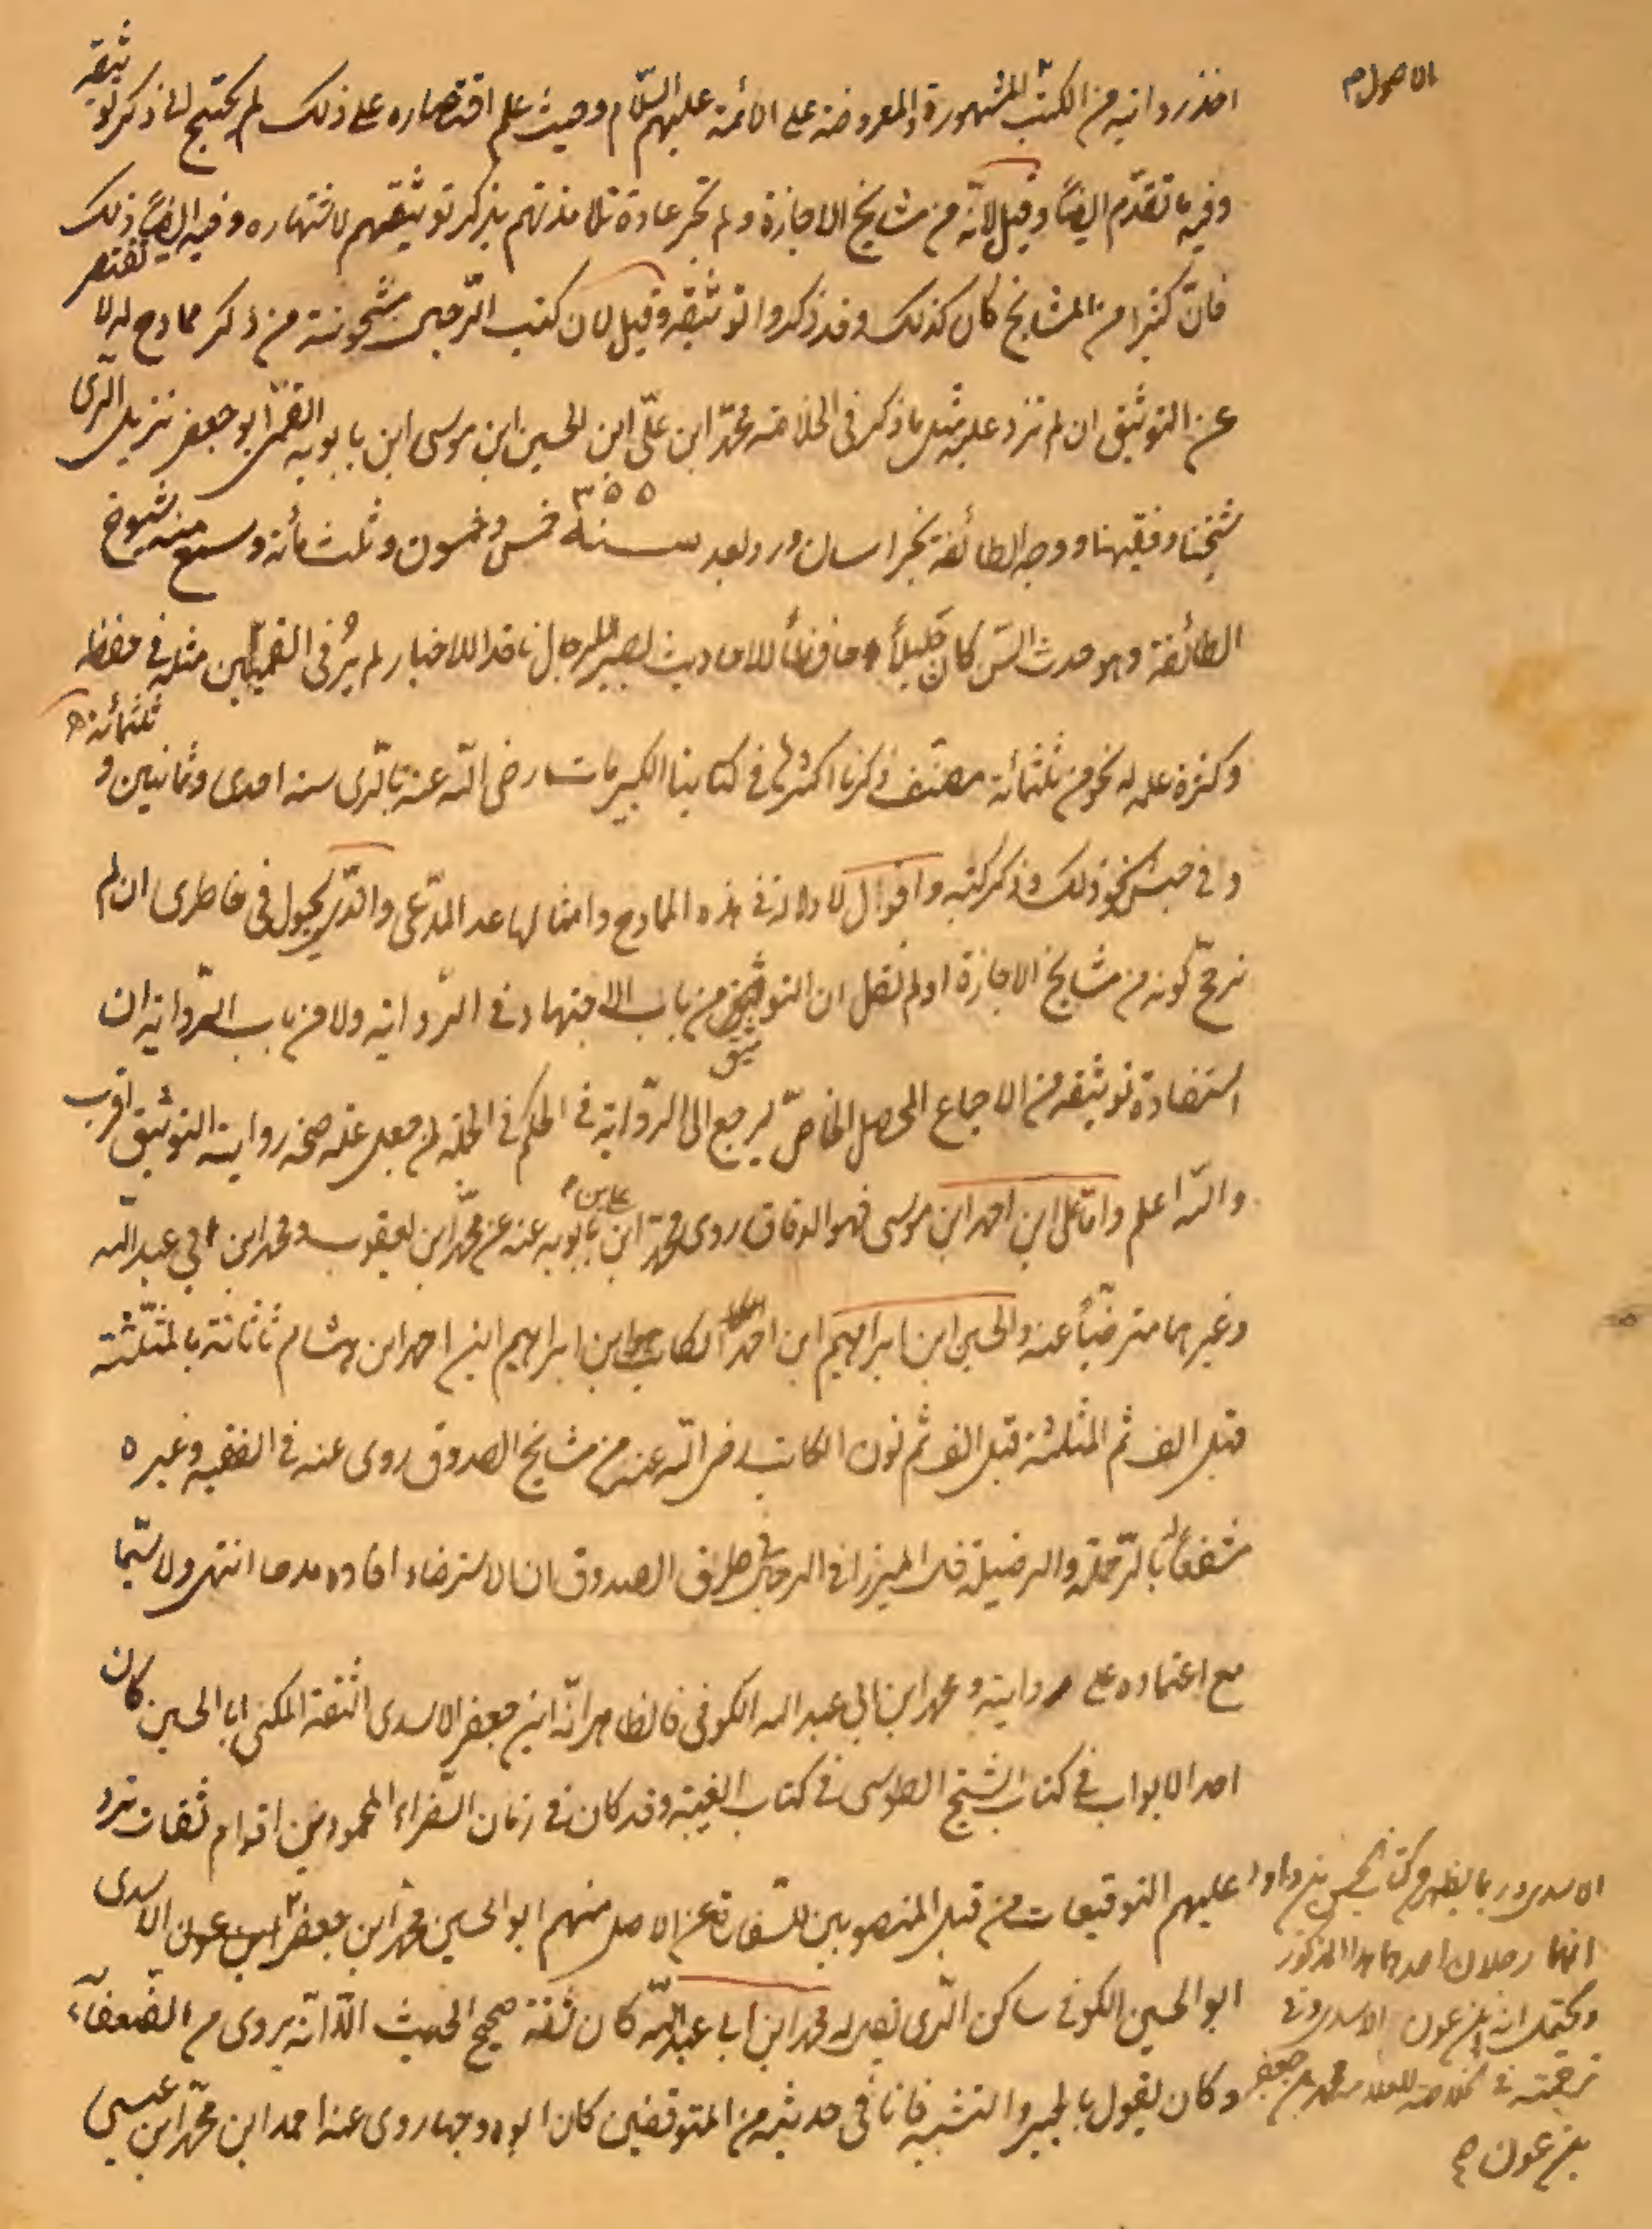 الاصول م
اخذ روايته من الكتب المشهورة والمعروضة على الائمة عليهم السّلام وحيث علم اقتصاره على ذلك لم يحتج الى ذكر توثيقه
وفيه ما تقدّم ايضاً وقيل لانّه من مشايخ الاجازة ولم تجر عادة تلامذتهم بذكر توثيقهم لاشتهاره وفيه ايضاً ذلك
فانّ كثيرا من المشايخ كان كذلك وقد ذكروا توثيقه وقيل لان كتب الرّجال مشحونة من ذكر ممادح له لا تقتصر
عن التوثيق ان لم تزد عليه مثل ما ذكر فى الخلاصة محمّد ابن علىّ ابن الحسين ابن موسى ابن بابويه القمّى ابو جعفر نزيل الرّى
شيخنا وفقيهنا ووجه الطائفة بخراسان ورد بغداد سنة ٣٥٥ خمس وخمسون وثلث مائة وسمع منه شيوخ
الطائفة وهو حدث السّن كان جليلاً حافظاً للاحاديث بصير بالرجال ناقدا للاخبار لم يُر فى القميّين مثله فى حفظه
وكثرة علمه له نحو من ثلثمائة مصنّف ذكرنا اكثرها فى كتابنا الكبير مات رضى الله عنه بالرّى سنة احدى وثمانين و ثلثمائة
وفى جش نحو ذلك وذكر كتبه واقول لا دلالة فى هذه الممادح وامثالها عد المدّعى والّذى يجول فى خاطرى ان لم
نرجّح كونه من مشايخ الاجازة او لم نقل ان التوثيق من باب الاجتهاد فى الرّواية ولا من باب الرّواية ان
استفادة توثيقه من الاجماع المحصل الخاصّ ليرجع الى الرّواية فى الحكم فى الجملة لمن جعل علمه صحة رواية التوثيق اقرب
والله اعلم وامّا على ابن احمد ابن موسى فهو الدقاق روى محمّد ابن على بن بابويه عنه عن محمّد ابن يعقوب ومحمد ابن ابى عبد الله
وغيرهما مترضّياً عنه والحسين ابن ابراهيم ابن احمد الكاتب ابن ابراهيم ابن احمد ابن هشام ثاثانة بالمثلّثة
قبل الف ثم المثلثة قبل الف ثم نون الكاتب رضى الله عنه من مشايخ الصدوق روى عنه فى الفقيه وغيره
مشفعاً بالرّحمة والرضيلة قال الميرزا فى الرجال فى طرق الصدوق ان الاسترضاء افاده مدحا انتهى ولا سيّما
مع اعتماده على روايته ومحمد ابن ابى عبد الله الكوفى فالظاهر انّه ابن جعفر الاسدى الثقة المكنى ابا الحسين كان
احد الابواب فى كتاب الشيخ الطوسى فى كتاب الغيبة وقد كان فى زمان السّفراء المحمودين اقوام ثقات ترد
عليهم التوقيعات من قبل المنصوبين للسّفارة عن الاصل منهم ابو الحسين محمّد ابن جعفر ابن عون الاسدى
ابو الحسين الكوفى ساكن الرّى يقال له محمد ابن ابى عبد الله كان ثقة صحيح الحديث الّا انّه يروى عن الضّعفاء
وكان يقول بالجبر والتشبيه فانا فى حديثه من المتوقفين كان ابوه وجها روى عنه احمد ابن محمّد ابن عيسى
الاسدى وربما يظهر من كتاب الحسن بن داود
انهما رجلان احدهما هذا المذكور
ويحتمل انه ابن عون الاسدى وفى
ترجمته فى الخلاصة للعلامة محمد بن جعفر
بن عون